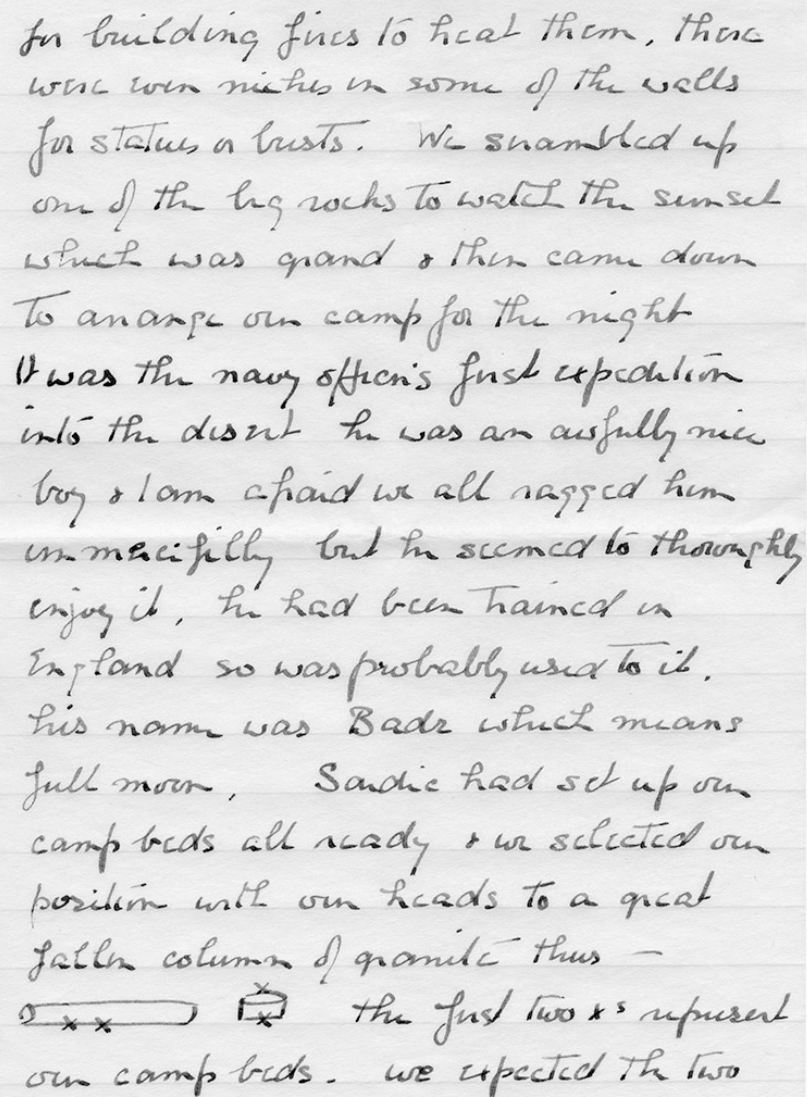 for building fires to heat them, there
were even niches in some of the walls
for statues or busts. We scrambled up
one of the big rocks to watch the sunset
which was grand & then came down
to arrange our camp for the night
It was the navy officer's first expedition
into the desert he was an awfully nice
boy & I am afraid we all ragged him
unmercifully but he seemed to thoroughly
enjoy it, he had been trained in
England so was probably used to it.
his name was Badr which means
full moon, Saudie had set up our
camp beds all ready & we selected our
position with our heads to a great
fallen column of granite thus —
x x x x the first two xs represent
our camp beds. we expected the two